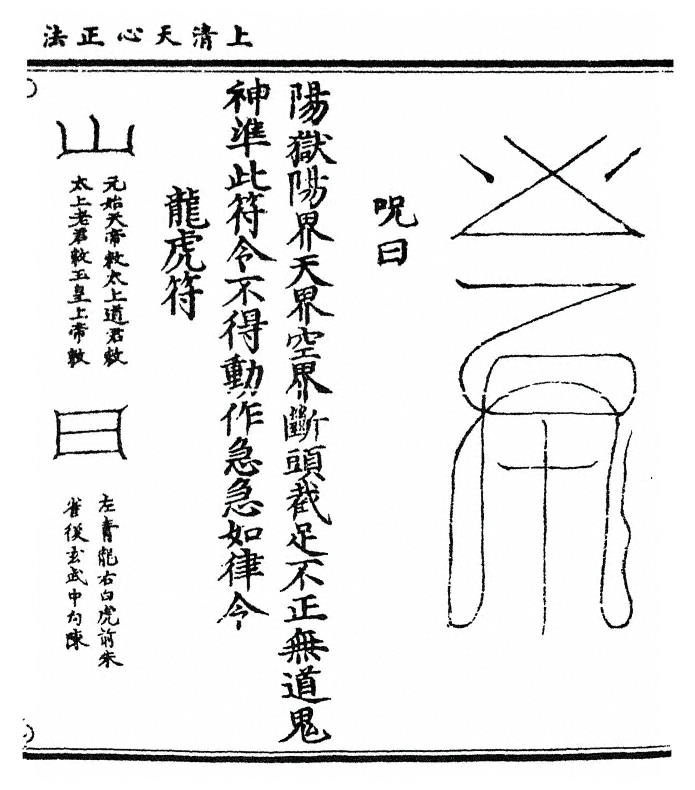 上清天心正法
呪曰
陽獄陽界天界空界斷頭截足不正無道鬼
神準此符令不得動作急急如律令
龍虎符
山
元始天帝敕太上道君敕
太上老君敕玉皇上帝敕
日
左青龍右白虎前朱
雀後玄武中勾陳